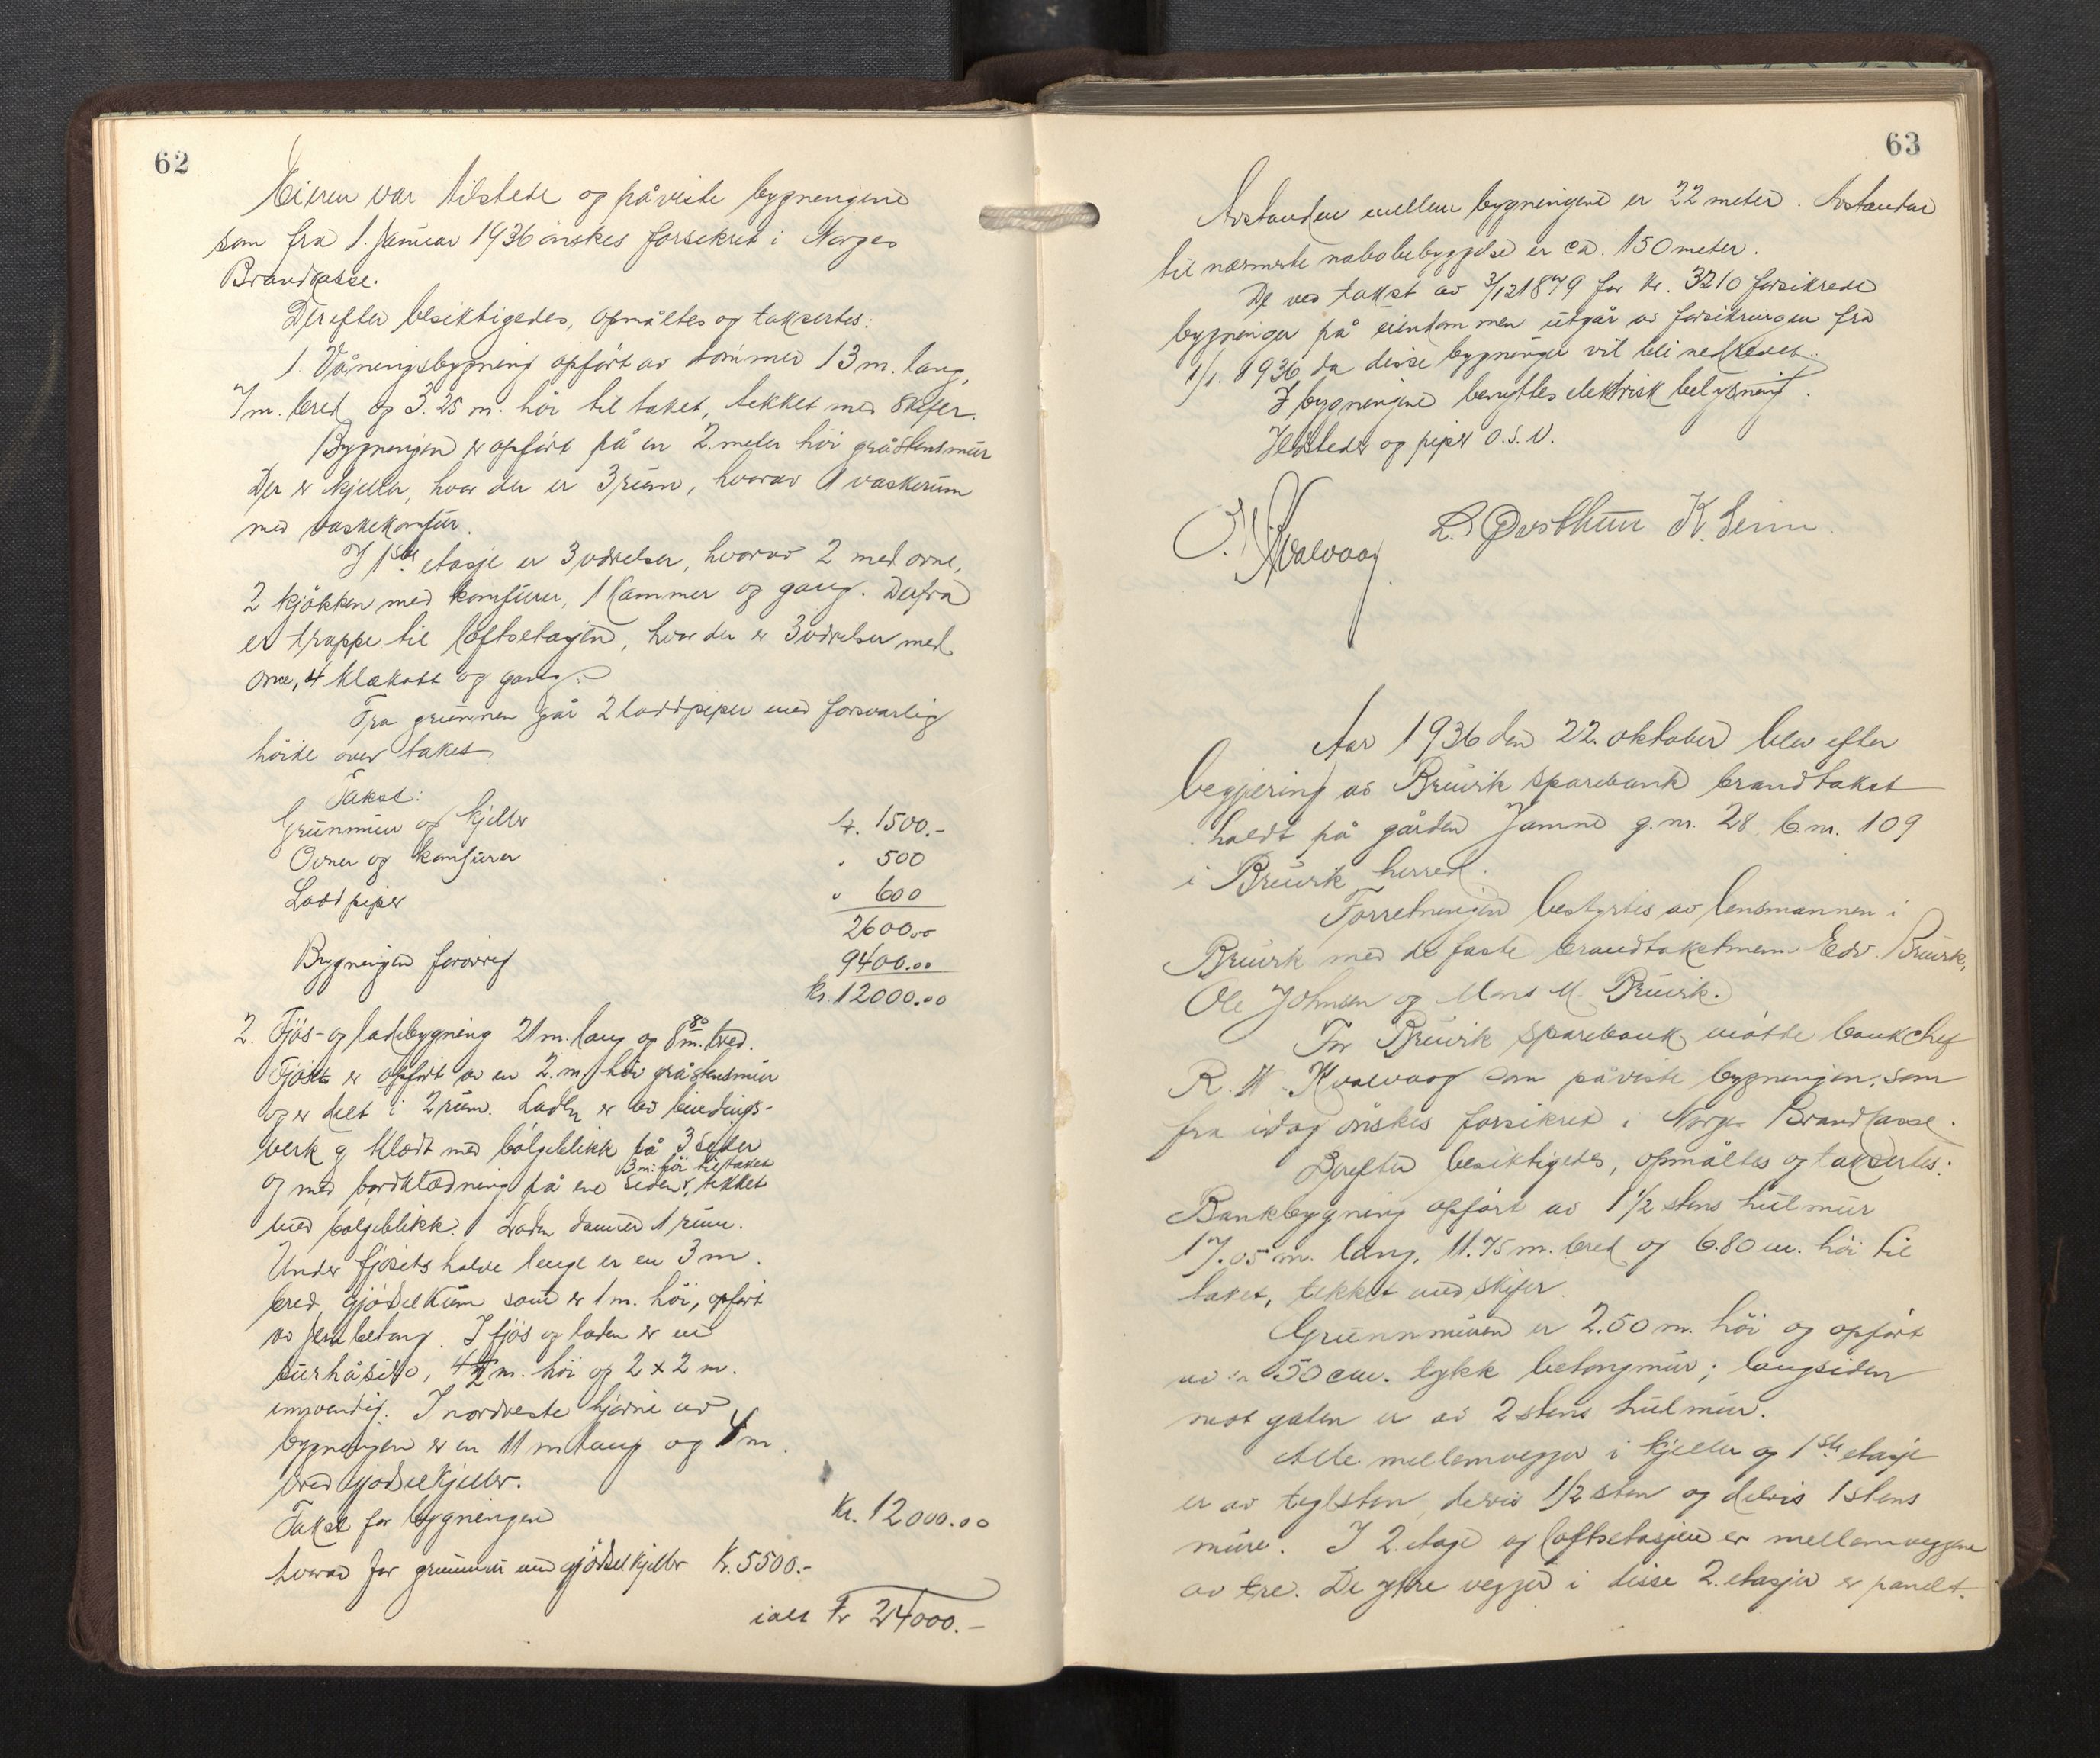 62
Eieren var tilstede og påviste bygningene
som fra 1. januar 1936 önskes forsikret i Norges
Brandkasse.
Derefter besiktigedes, opmåltes og taksertes:
1. Våningsbygning opfört av tömmer 13 m. lang,
7 m. bred og 3.25 m. höi til taket, tekket med skifer.
Bygningen er opfört på en 2 meter höi gråstensmur
Der er kjeller, hvor der er 3 rum, hvorav 1 vaskerum
med vaskekomfur.
I 1ste etasje er 3 værelser, hvorav 2 med ovne,
2 kjökken med komfurer, 1 kammer og gang. Derfra
er trappe til loftsetagen, hvor der er 3 værelser med
ovne, 4 klækott og gang.
Fra grunnen går 2 loddpiper med forsvarlig
höide over taket
Takst:
Grunmur og kjeller kr. 1500.-
Ovner og komfurer " 500
Loddpiper " 600
2600.00
Bygningen forövrig 9400.00
Kr. 12000.00
2. Fjös- og ladebygning 21 m. lang og 8 80 m. bred.
Fjöset er opfört av en 2. m. höi gråstensmur
og er delt i 2 rum. Laden er av bindings-
verk og klædt med bölgeblikk på 3 sider
3 m. höi til taket
og med bordklædning på ene siden, tekket
med bölgeblikk. Laden danner 1 rum.
Under fjösets halve lengde er en 3 m.
bred gjödselkum som er 1 m. höi, opfört
av jernbetong. I fjös og laden er en
surhåsilo, 4 1/2 m. höi og 2 x 2 m.
innvendig. I nordvestre hjörne av
bygningen er en 11 m lang og 4 m.
bred gjödselkjeller.
Takst for bygningen Kr. 12000.00
hvorav for grunmur med gjödselkjeller Kr. 5500.-
ialt Kr 24000.-
63
Avstanden mellem bygningene er 22 meter. Avstanden
til nærmeste nabobebyggelse er ca. 150 meter.
De ved takst av 3/12 1879 for kr. 3210 forsikrede
bygninger på eiendommen utgår av forsikringen fra
1/1. 1936 da disse bygninger vil bli nedrevet.
I bygningene benyttes elektrisk belysning.
Ildsteder og piper o.s.v.
Kvalvaag L. Øvsthun K. Seim.
Aar 1936 den 22. oktober blev efter
begjæring av Bruvik sparebank brandtakst
holdt på gården Jamne g.nr. 28 b.nr. 109
i Bruvik herred.
Forretningen bestyrtes av lensmannen i
Bruvik med de faste brandtakstmenn Edv. Bruvik,
Ole Johnsen og Mons M. Bruvik.
For Bruvik sparebank mötte bankchef
R. W. Kvalvaag som påviste bygningen, som
fra idag önskes forsikret i Norges Brandkasse.
Derefter besiktigedes, opmåltes og taksertes:
Bankbygning opfört av 1 1/2 stens hulmur
17.05 m. lang, 11.75 m. bred og 6.80 m. höi til
taket, tekket med skifer.
Grunnmuren er 2.50 m. höi og opfört
av 50 cm. tykk betongmur; langsiden
mot gaten er av 2 stens hulmur.
Alle mellemvegger i kjeller og 1ste etasje
er av teglsten, delvis 1/2 sten og delvis 1 stens
mure. I 2. etage og loftsetasjen er mellemveggene
av tre. De ytre vegger i disse 2. etasjer er panelt.